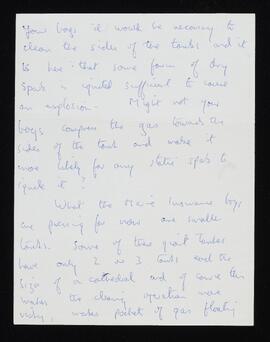 Your bags it would be necessary to
clean the sides of the tanks and it
is here that some form of dry
spark is ignited sufficient to cause
an explosion. Might not your
bags compress the gas towards the
sides of the tank and make it
more likely for any static spark to
ignite it?
What the Marine Insurance boys
are pressing for now are smaller
tanks. Some of these giant tankers
have only 2 or 3 tanks each the
size of a cathedral and of course this
makes the cleaning operation more
risky, makes pockets of gas floating